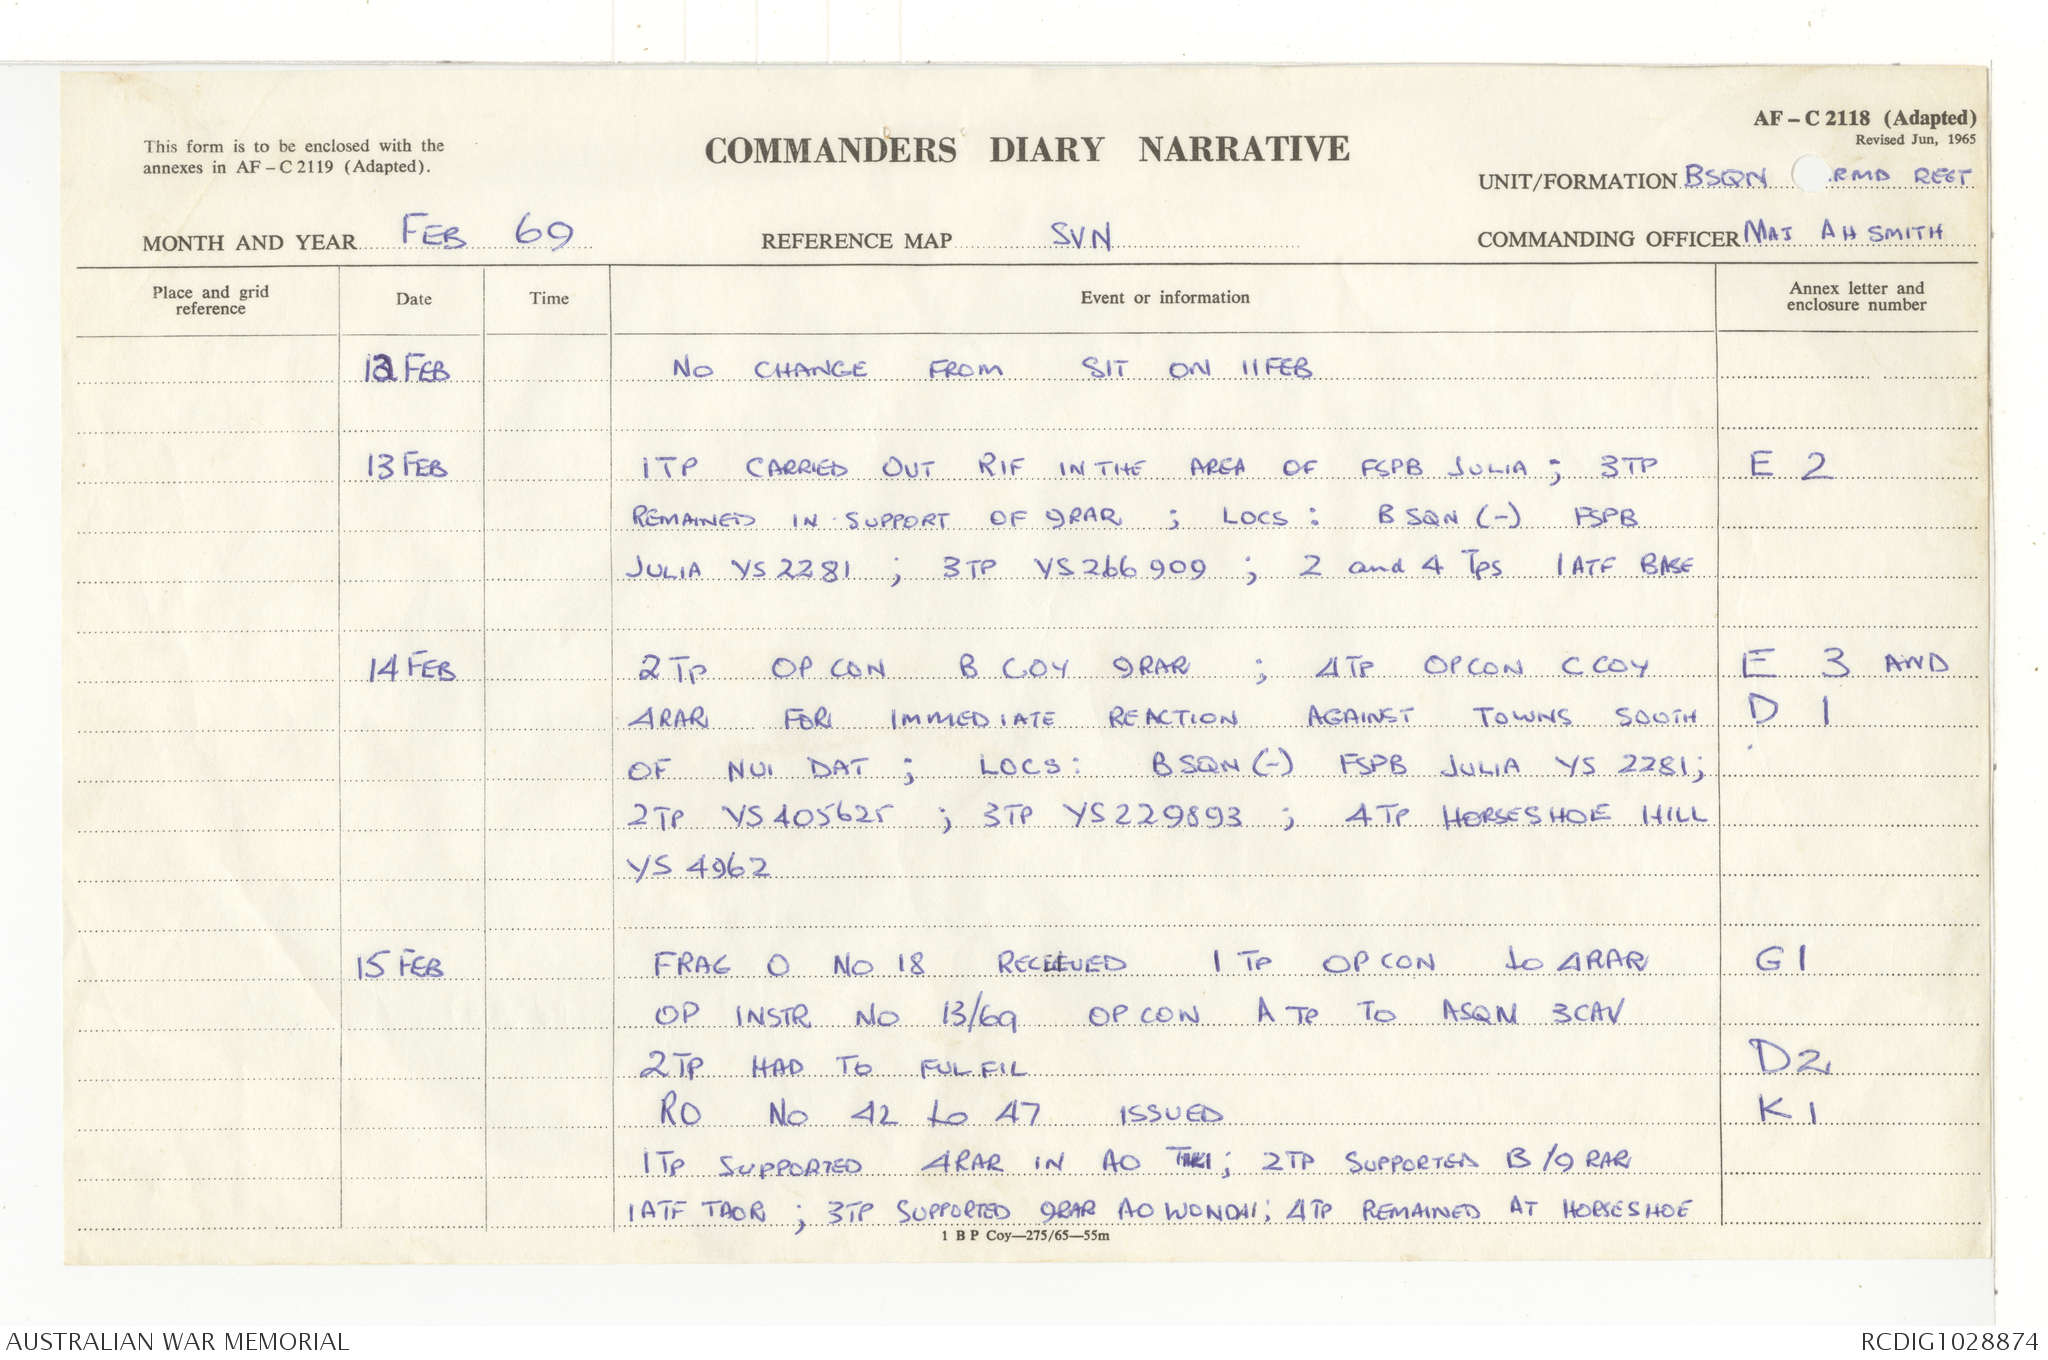 AF – C 2118 (Adapted)
Revised Jun, 1965
This form is to be enclosed with the
annexes in AF – C 2119 (Adapted).
COMMANDERS DIARY NARRATIVE
UNIT/FORMATION BSQN RMD REGT
MONTH AND YEAR FEB 69
REFERENCE MAP SVN
COMMANDING OFFICER MAJ A H SMITH
Place and grid
reference
Date
Time
Event or information
Annex letter and
enclosure number
12 FEB NO CHANGE FROM SIT ON 11 FEB
13 FEB 1TP CARRIED OUT RIF IN THE AREA OF FSPB JULIA ; 3TP E 2
REMAINED IN SUPPORT OF 9RAR ; LOCS : B SQN (-) FSPB
JULIA YS 2281 ; 3TP YS 266 909 ; 2 and 4 Tps 1ATF BASE
14 FEB 2 TP OP CON B COY 9RAR ; 4TP OPCON C COY E 3 AND
4RAR FOR IMMEDIATE REACTION AGAINST TOWNS SOUTH D 1
OF NUI DAT ; LOCS : B SQN (-) FSPB JULIA YS 2281;
2TP YS 405625 ; 3TP YS 229893 ; 4TP HORSESHOE HILL
YS 4962
15 FEB FRAG O NO 18 RECEIEVED 1 TP OP CON to 4RAR G 1
OP INSTR NO 13/69 OP CON A TP TO ASQN 3CAV
2TP HAD TO FULFIL D2
RO NO 42 to 47 ISSUED K 1
1TP SUPPORTED 4RAR IN AO ; 2TP SUPPORTED B/9 RAR
1ATF TAOR ; 3TP SUPPORTED 9RAR AO WONDAI ; 4TP REMAINED AT HORSESHOE
1 B P Coy—275/65—55m
AUSTRALIAN WAR MEMORIAL
RCDIG1028874